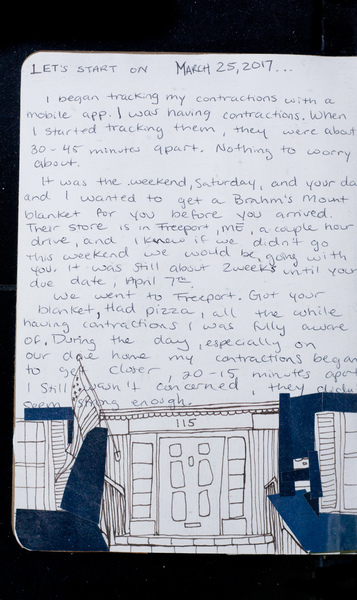 LET'S START ON MARCH 25, 2017...
I began tracking my contractions with a
mobile app. I was having contractions. When
I started tracking them, they were about
30-45 minutes apart. Nothing to worry
about.
It was the weekend, Saturday, and your da
and I wanted to get a Brahm's Mount
blanket for you before you arrived.
Their store is in Freeport, ME, a couple hour
drive, and I knew if we didn't go
this weekend we would be going with
you. It was still about 2 weeks until your
due date, April 7th.
We went to Freeport. Got your
blanket, Had pizza, all the while
having contractions I was fully aware
of. During the day, especially on
our drive home my contractions began
to get closer, 20-15 minutes apart
I Still wasn't concerned, they didn't
seem strong enough.
115